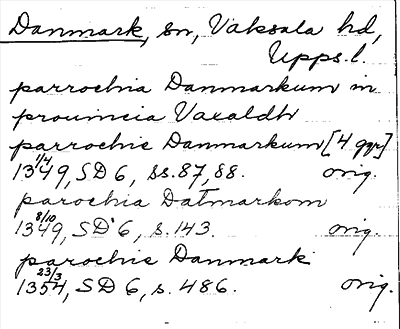 Danmark, sn, Vaksala hd,
Upps.l.
parrochia Danmarkum in
prouincia Vaxaldh
parrochie Danmarkum [4 ggr]
1349 1/4, SD 6, ss. 87, 88. orig.
parochia Datmarkom
1349 8/10, SD 6, s. 143. orig.
parochie Danmark
1354 23/3, SD 6, s. 486. orig.